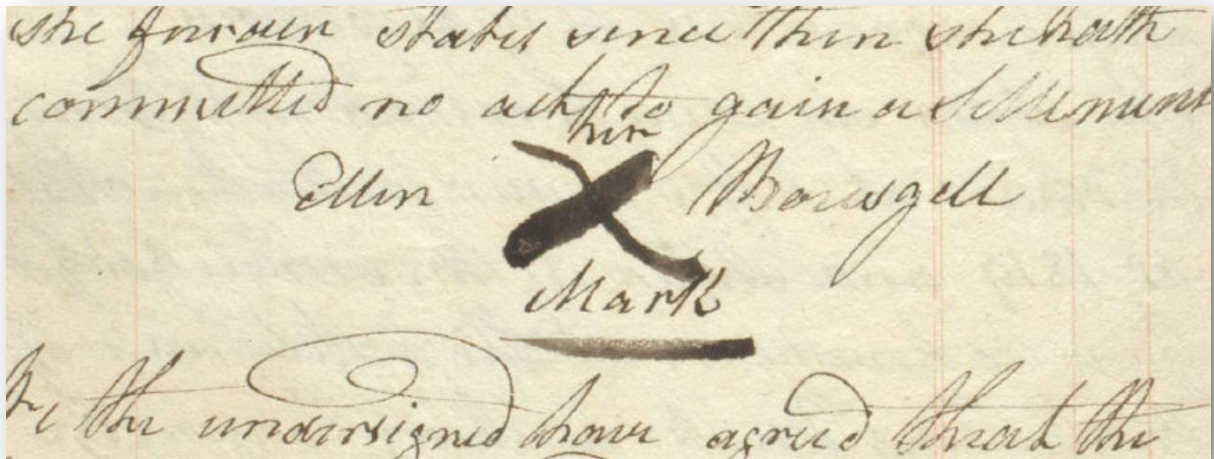 she forover states since then she hath
committed no act to gain a Settlement
her
Ellin X Bowsgell
Mark
We the undersigned have agreed that the